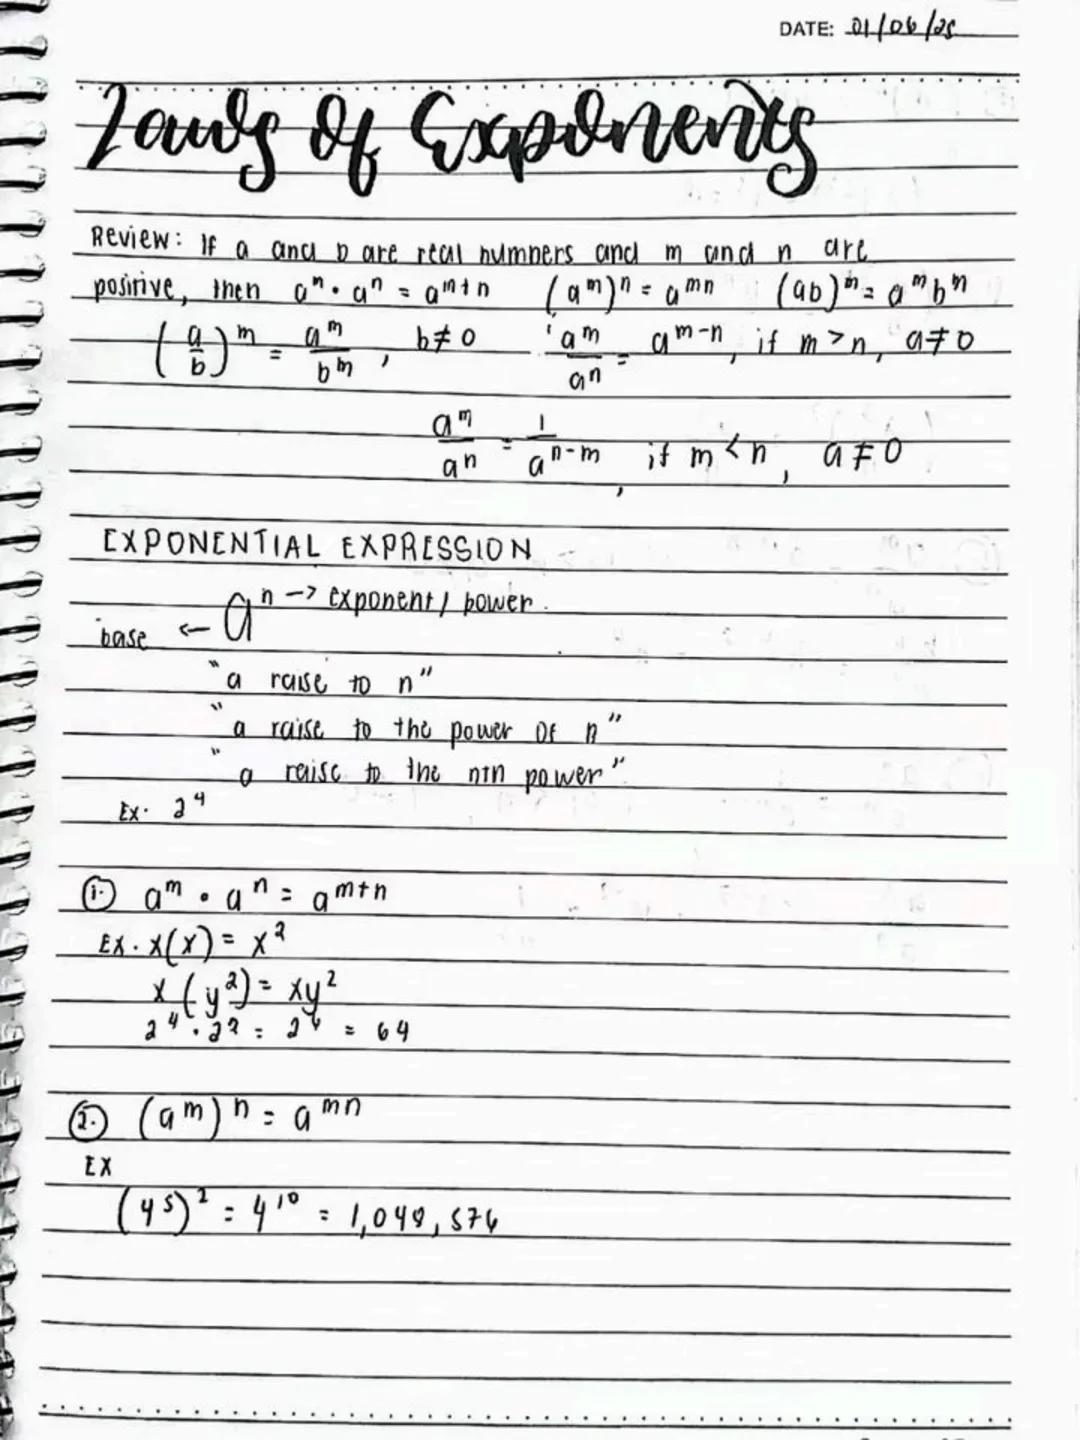 DATE: 01/06/25
Laws of Exponents
Review: If a and b are real numbers and m and n are
positive, then aᵐ · aⁿ = aᵐ⁺ⁿ (aᵐ)ⁿ = aᵐⁿ (ab)ᵐ = aᵐbᵐ
(a/b)ᵐ = aᵐ/bᵐ, b ≠ 0 aᵐ/aⁿ = aᵐ⁻ⁿ, if m > n, a ≠ 0
aᵐ/aⁿ = 1/aⁿ⁻ᵐ, if m < n, a ≠ 0
EXPONENTIAL EXPRESSION
aⁿ → exponent / power.
base ←
"a raise to n"
"a raise to the power of n"
"a raise to the nth power"
Ex. 2⁴
1. aᵐ · aⁿ = aᵐ⁺ⁿ
Ex. x(x) = x²
x(y²) = xy²
2⁴ · 2² = 2⁶ = 64
2. (aᵐ)ⁿ = aᵐⁿ
EX
(4⁵)² = 4¹⁰ = 1,048,576